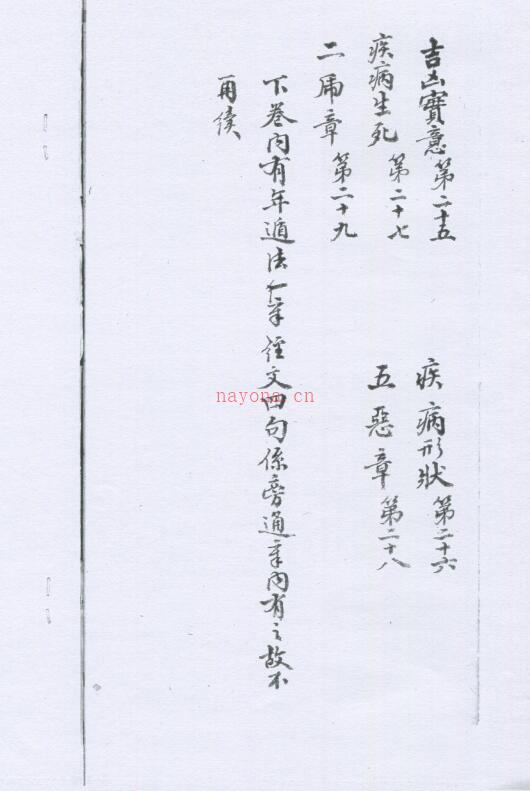 吉凶實意第二十五
疾病形狀第二十六
疾病生死第二十七
五惡章第二十八
二虎章第二十九
下卷内有年遁法一章 經文四句係旁通章内有之故不
再續
nayona.cn